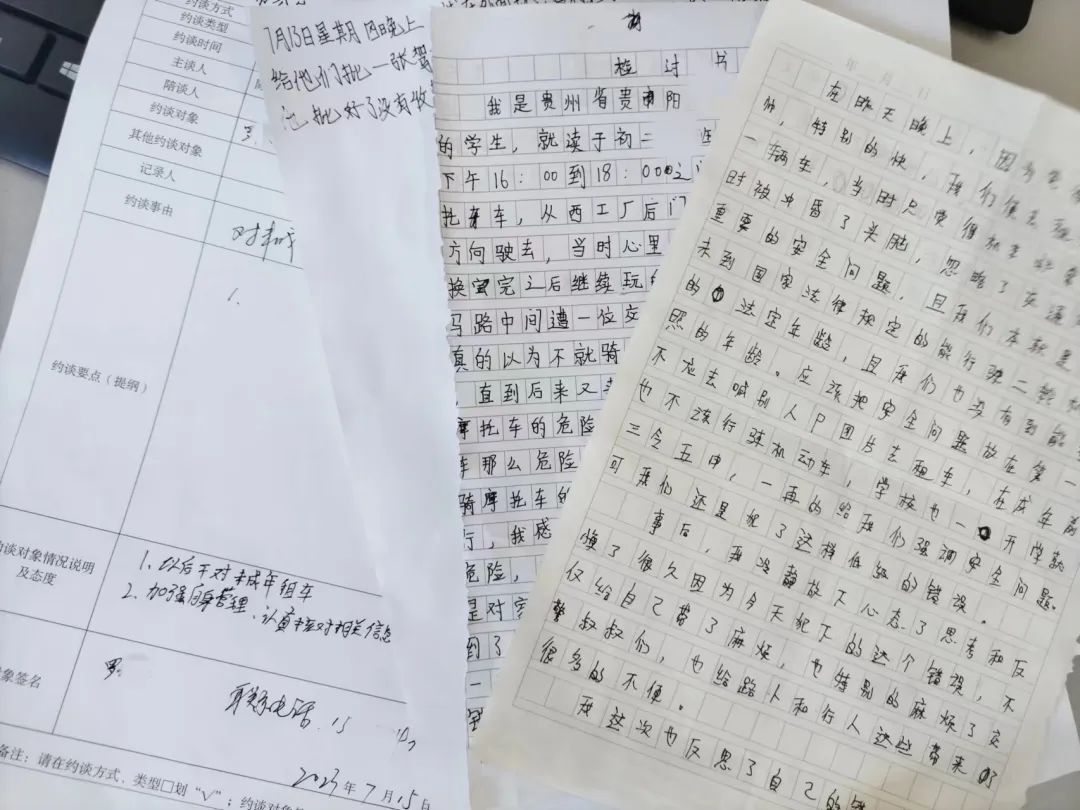 约谈方式
约谈类型
约谈时间
主谈人
陪谈人
约谈对象
其他约谈对象
记录人
约谈事由
约谈要点（提纲）
1.
谈对象情况说明
及态度
1、以后不对未成年租车
2、加强自身管理、认真核对相关信息
象签名
联系电话:15
2023年7月15日
备注：请在约谈方式、类型□划“√”；约谈对象
7月13日星期四晚上
给他们批一张驾
批好了没有收
检讨书
我是贵州省贵阳
的学生，就读于初二
下午16:00到18:00之
托车，从西工厂后门
方向驶去，当时心里
换完之后继续玩
马路中间遭一位交
真的以为不就骑
，直到后来又
摩托车的危险
车那么危险
骑摩托车的
行，我感
危险，
是对
到了
一
年 月 日
在昨天晚上，因为
特别的快，我们便去租
一辆车，当时只觉得
时被冲昏了头脑，忽略了交通
重要的安全问题，且我们本就是
未到国家法律规定的能行驶二轮
的法定年龄，且我们也没有到能
照的年龄。应该把安全问题放在第一
不应去喊别人P图片去租车，在成年前
也不该行驶机动车，学校也一开学就
三令五申，一再的给我们强调安全问题。
可我们还是犯了这样低级的错误。
事后，我没静放下心态了思考和反
惭了很久因为今天犯下的这个错误，不
仅给自己带了麻烦，也特别的麻烦了交
警叔叔们，也给路人和行人这些带来
很多的不便。
我这次也反思了自己的